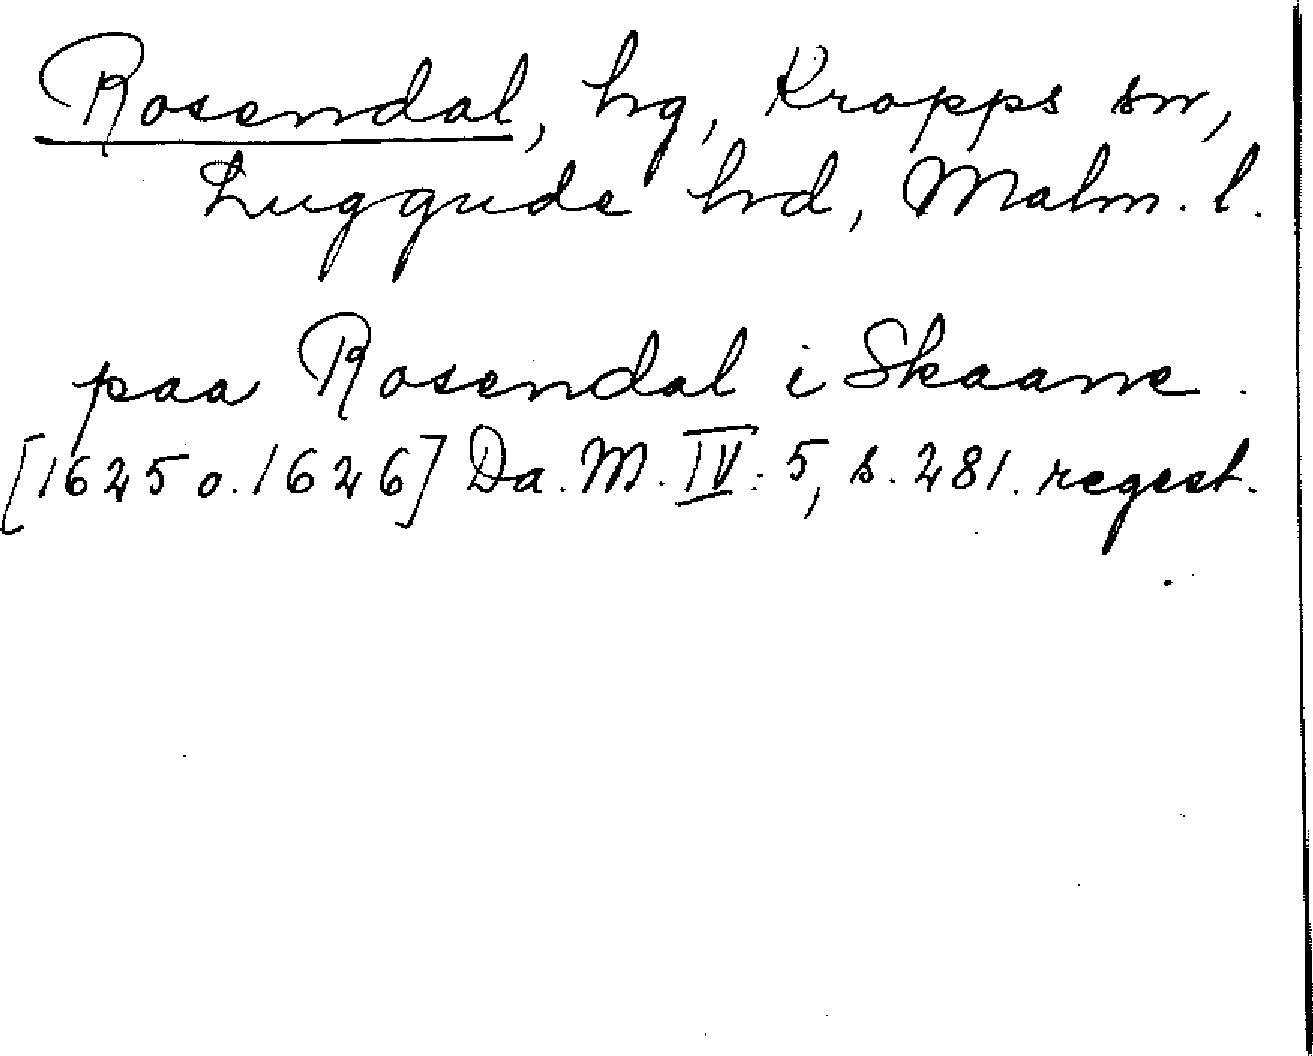 Rosendal, hg, Kropps sn,
Luggude hrd, Malm. l.
paa Rosendal i Skaane.
[1625 o. 1626] Da. M. IV: 5, s. 281. regest.